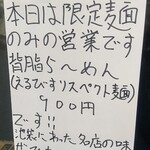 本日は限定麺
のみの営業です
背脂らーめん
(えるびーすリスペクト麺)
900円
でーす!!
池袋にあった名店の味